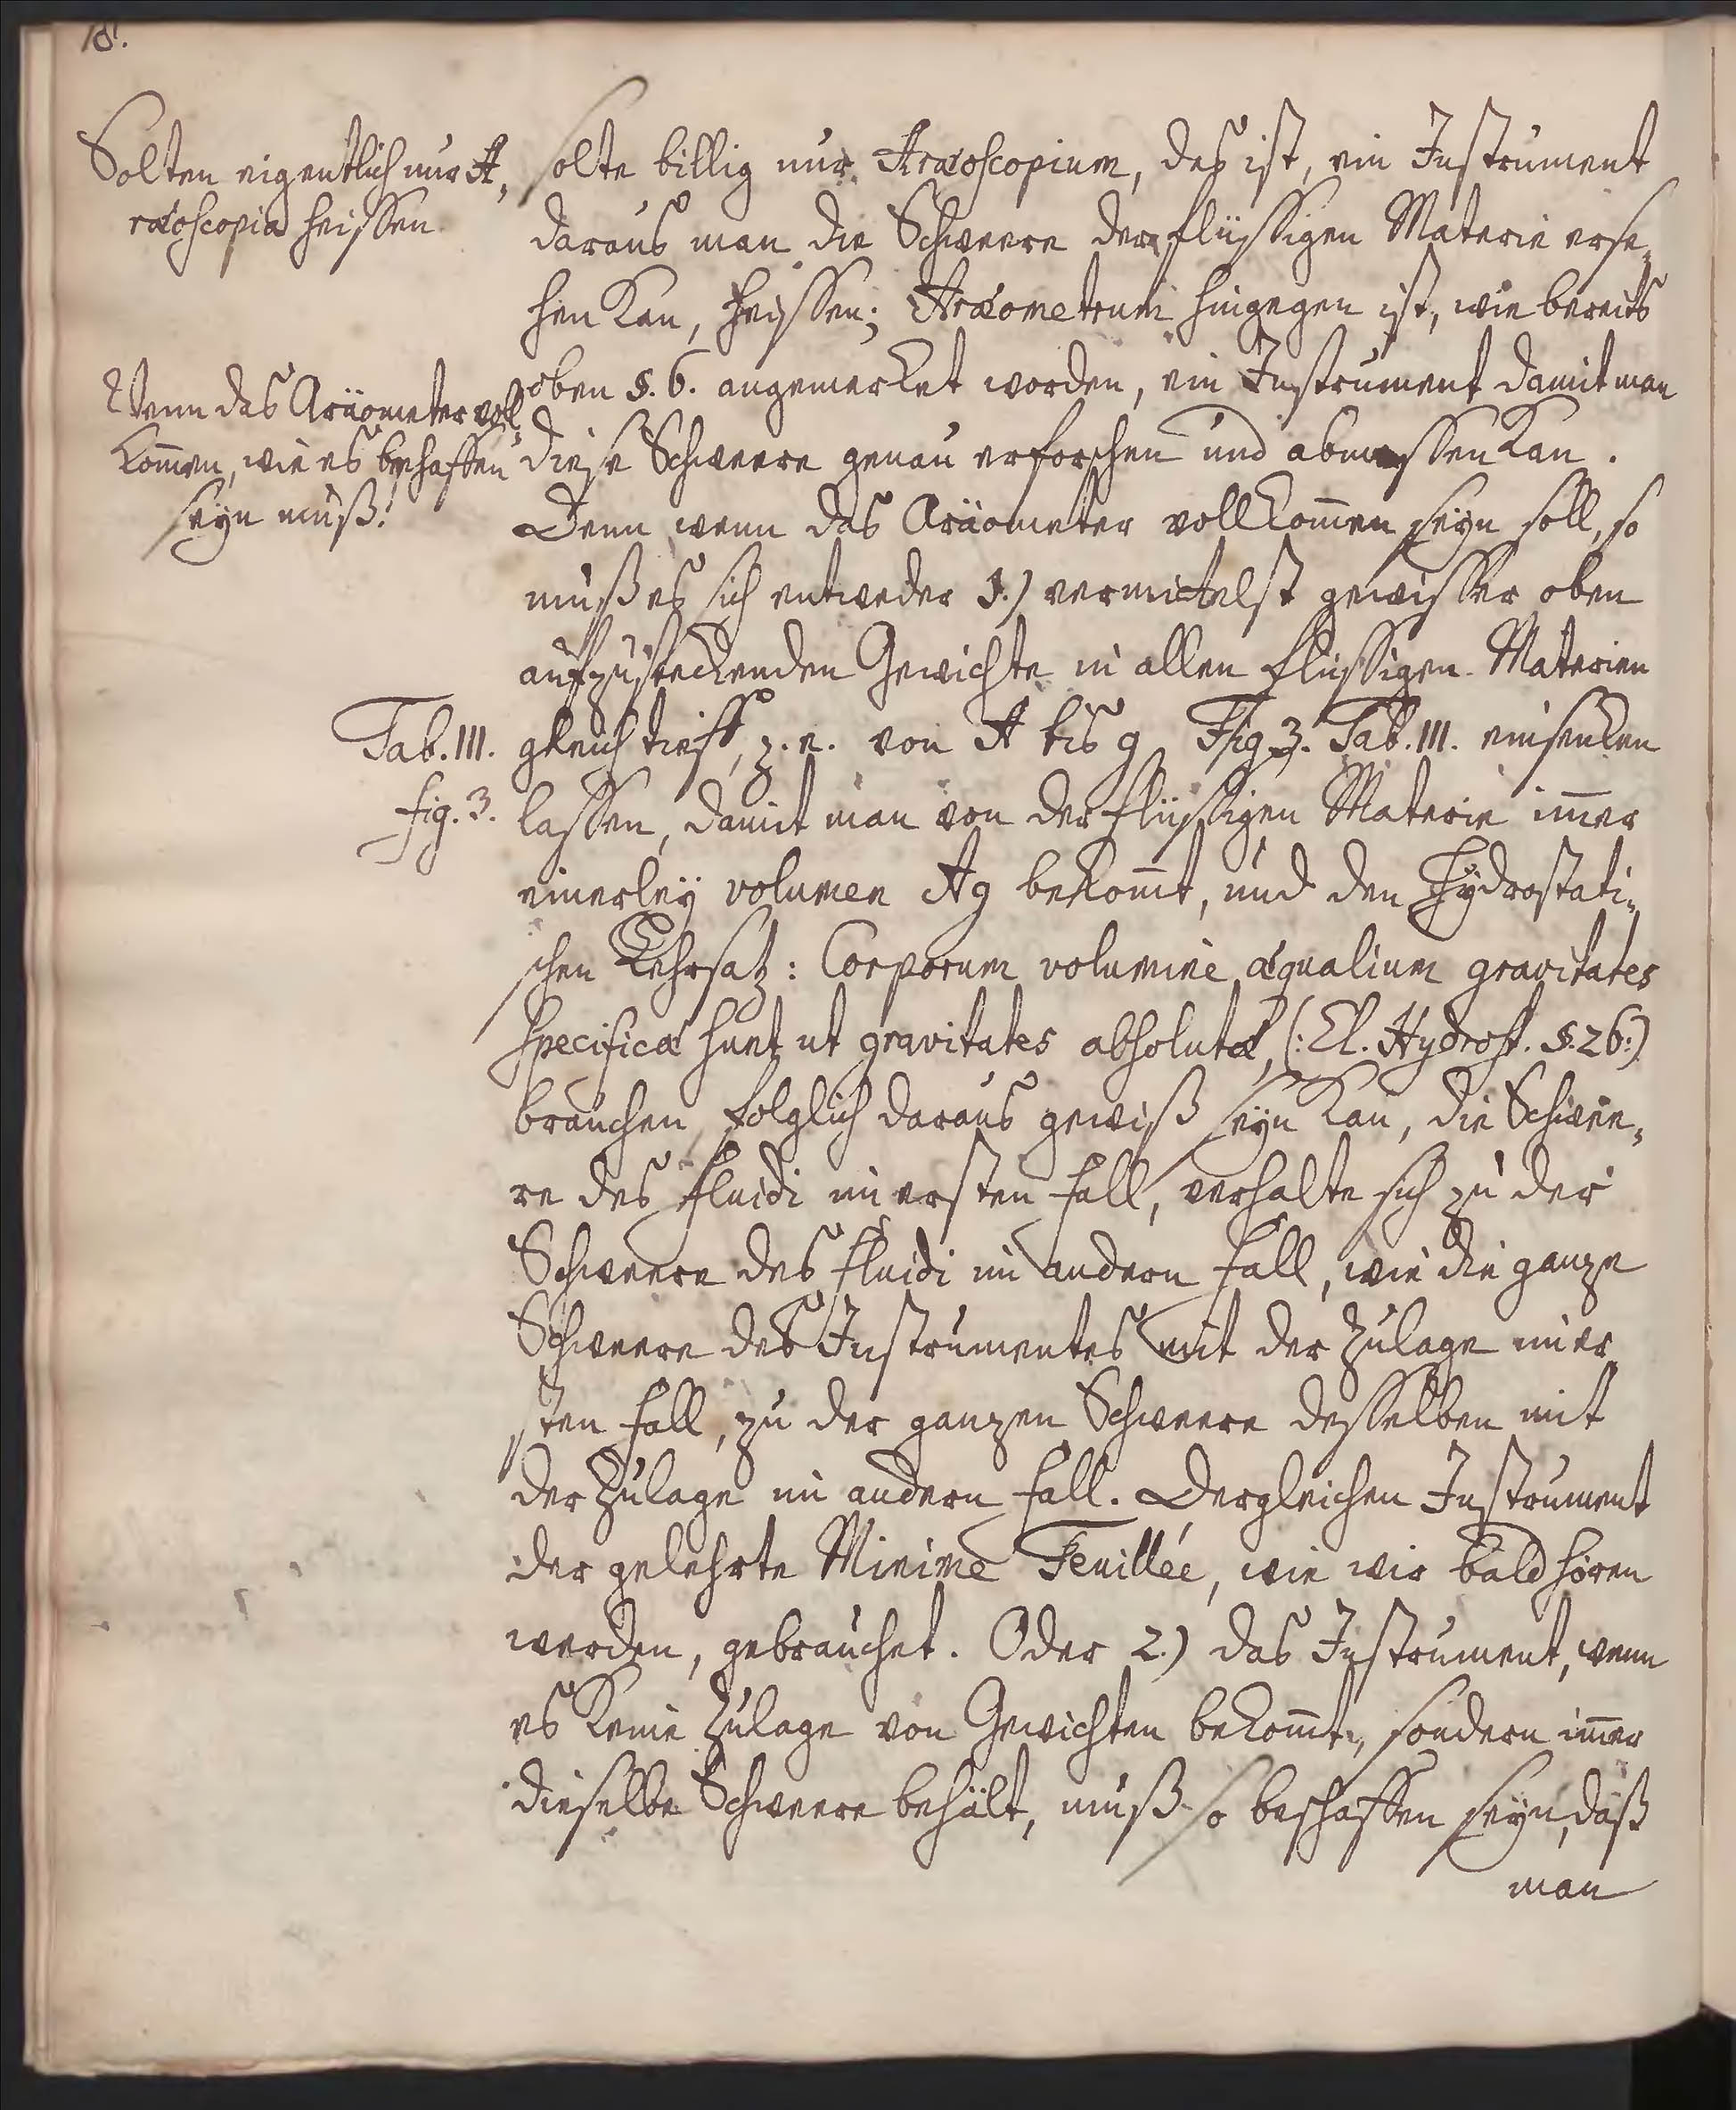 18.
Solten eigentlich nur A„
ræoscopia heissen
solte billig nur Aræoscopium, das ist, ein Instrument
daraus man die Schweere der flüssigen Materie erse„
hen kan, heissen; Aræometrum hingegen ist, wie bereits
oben §. 6. angemerket worden, ein Instrument damit man
Wenn das Aräometer voll„
kom̄en, wie es beschaffen
seyn muß.
diese Schweere genau erforschen und abmessen kan.
Denn wenn das Aräometer vollkom̄en seyn soll, so
muß es sich entweder 1.) vermittelst gewisser oben
aufzusteckenden Gewichte in allen flüssigen Materien
Tab. III.
fig. 3.
gleich tieff, z. e. von A bis g Fig. 3. Tab. III. einsenken
lassen, damit man von der flüssigen Materie im̄er
einerley volumen Ag bekom̄t, und den Hydrostati„
schen Lehrsatz: Corporum volumine æqualium gravitates
specificæ sunt ut gravitates absolutæ, (: El. Hydrost. §. 26:)
brauchen, folglich daraus gewiß seyn kan, die Schwee„
re des fluidi im ersten fall, verhalte sich zu der
Schweere des fluidi im andern fall, wie die ganze
Schweere des Instrumentes mit der Zulage im er
sten fall, zu der ganzen Schweere desselben mit
der Zulage im andern fall. Dergleichen Instrument
der gelehrte Minime Feuillée, wie wir bald hören
werden, gebrauchet. Oder 2.) das Instrument, wenn
es keine Zulage von Gewichten bekom̄t, sondern im̄er
dieselbe Schweere behält, muß so beschaffen seyn, daß
man